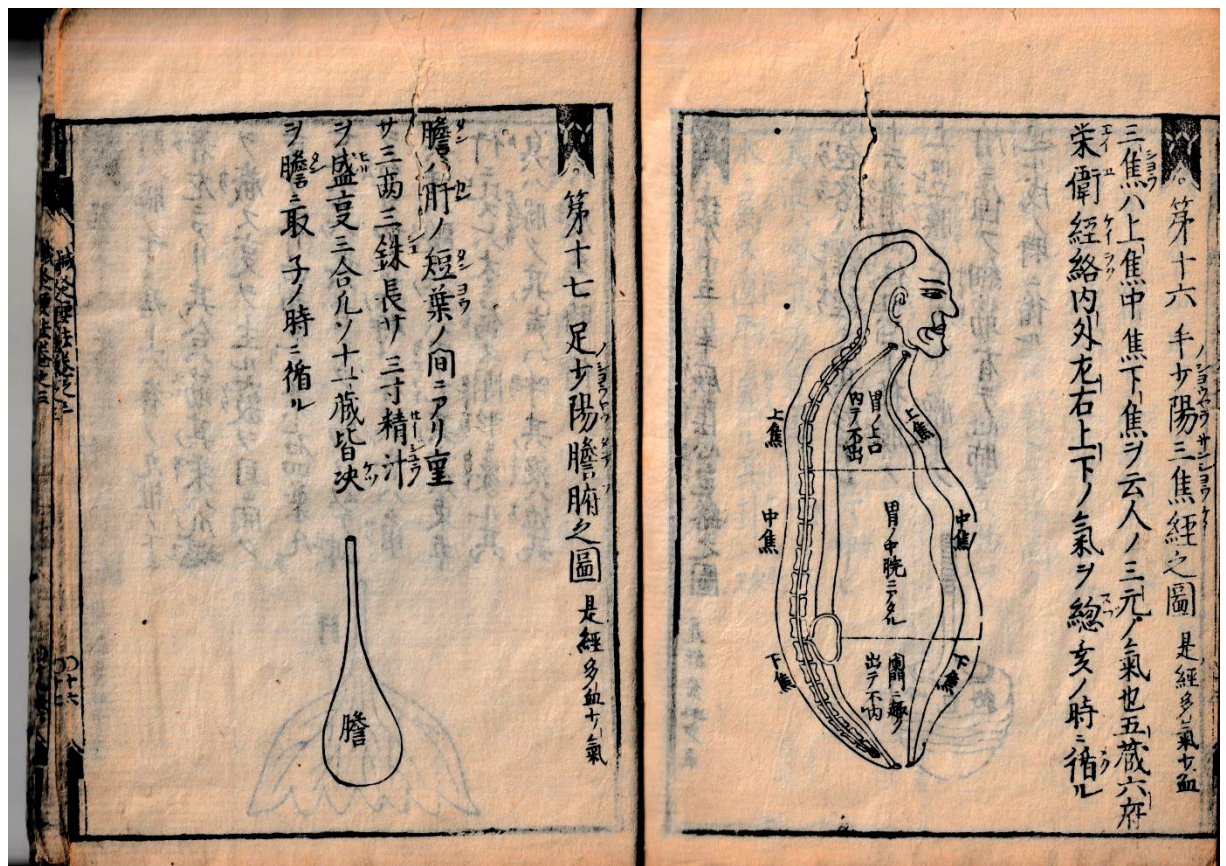 第十六 手少陽三焦經之圖 是經多氣少血
三焦ハ上焦中焦下焦ヲ云人ノ三元ノ氣也五蔵六府
栄衛經絡内外左右上下ノ氣ヲ總亥ノ時ニ循ル
上焦
胃ノ上口
内テ不出
上焦
中焦
胃ノ中脘ニアタル
中焦
下焦
闌門ニ趣ク
出テ不内
下焦
第十七 足少陽膽腑之圖 是經多血少氣
膽ハ肝ノ短葉ノ間ニアリ重
サ三两三銖長サ三寸精汁
ヲ盛事三合凡ソ十一蔵皆决
ヲ膽ニ取子ノ時ニ循ル
膽